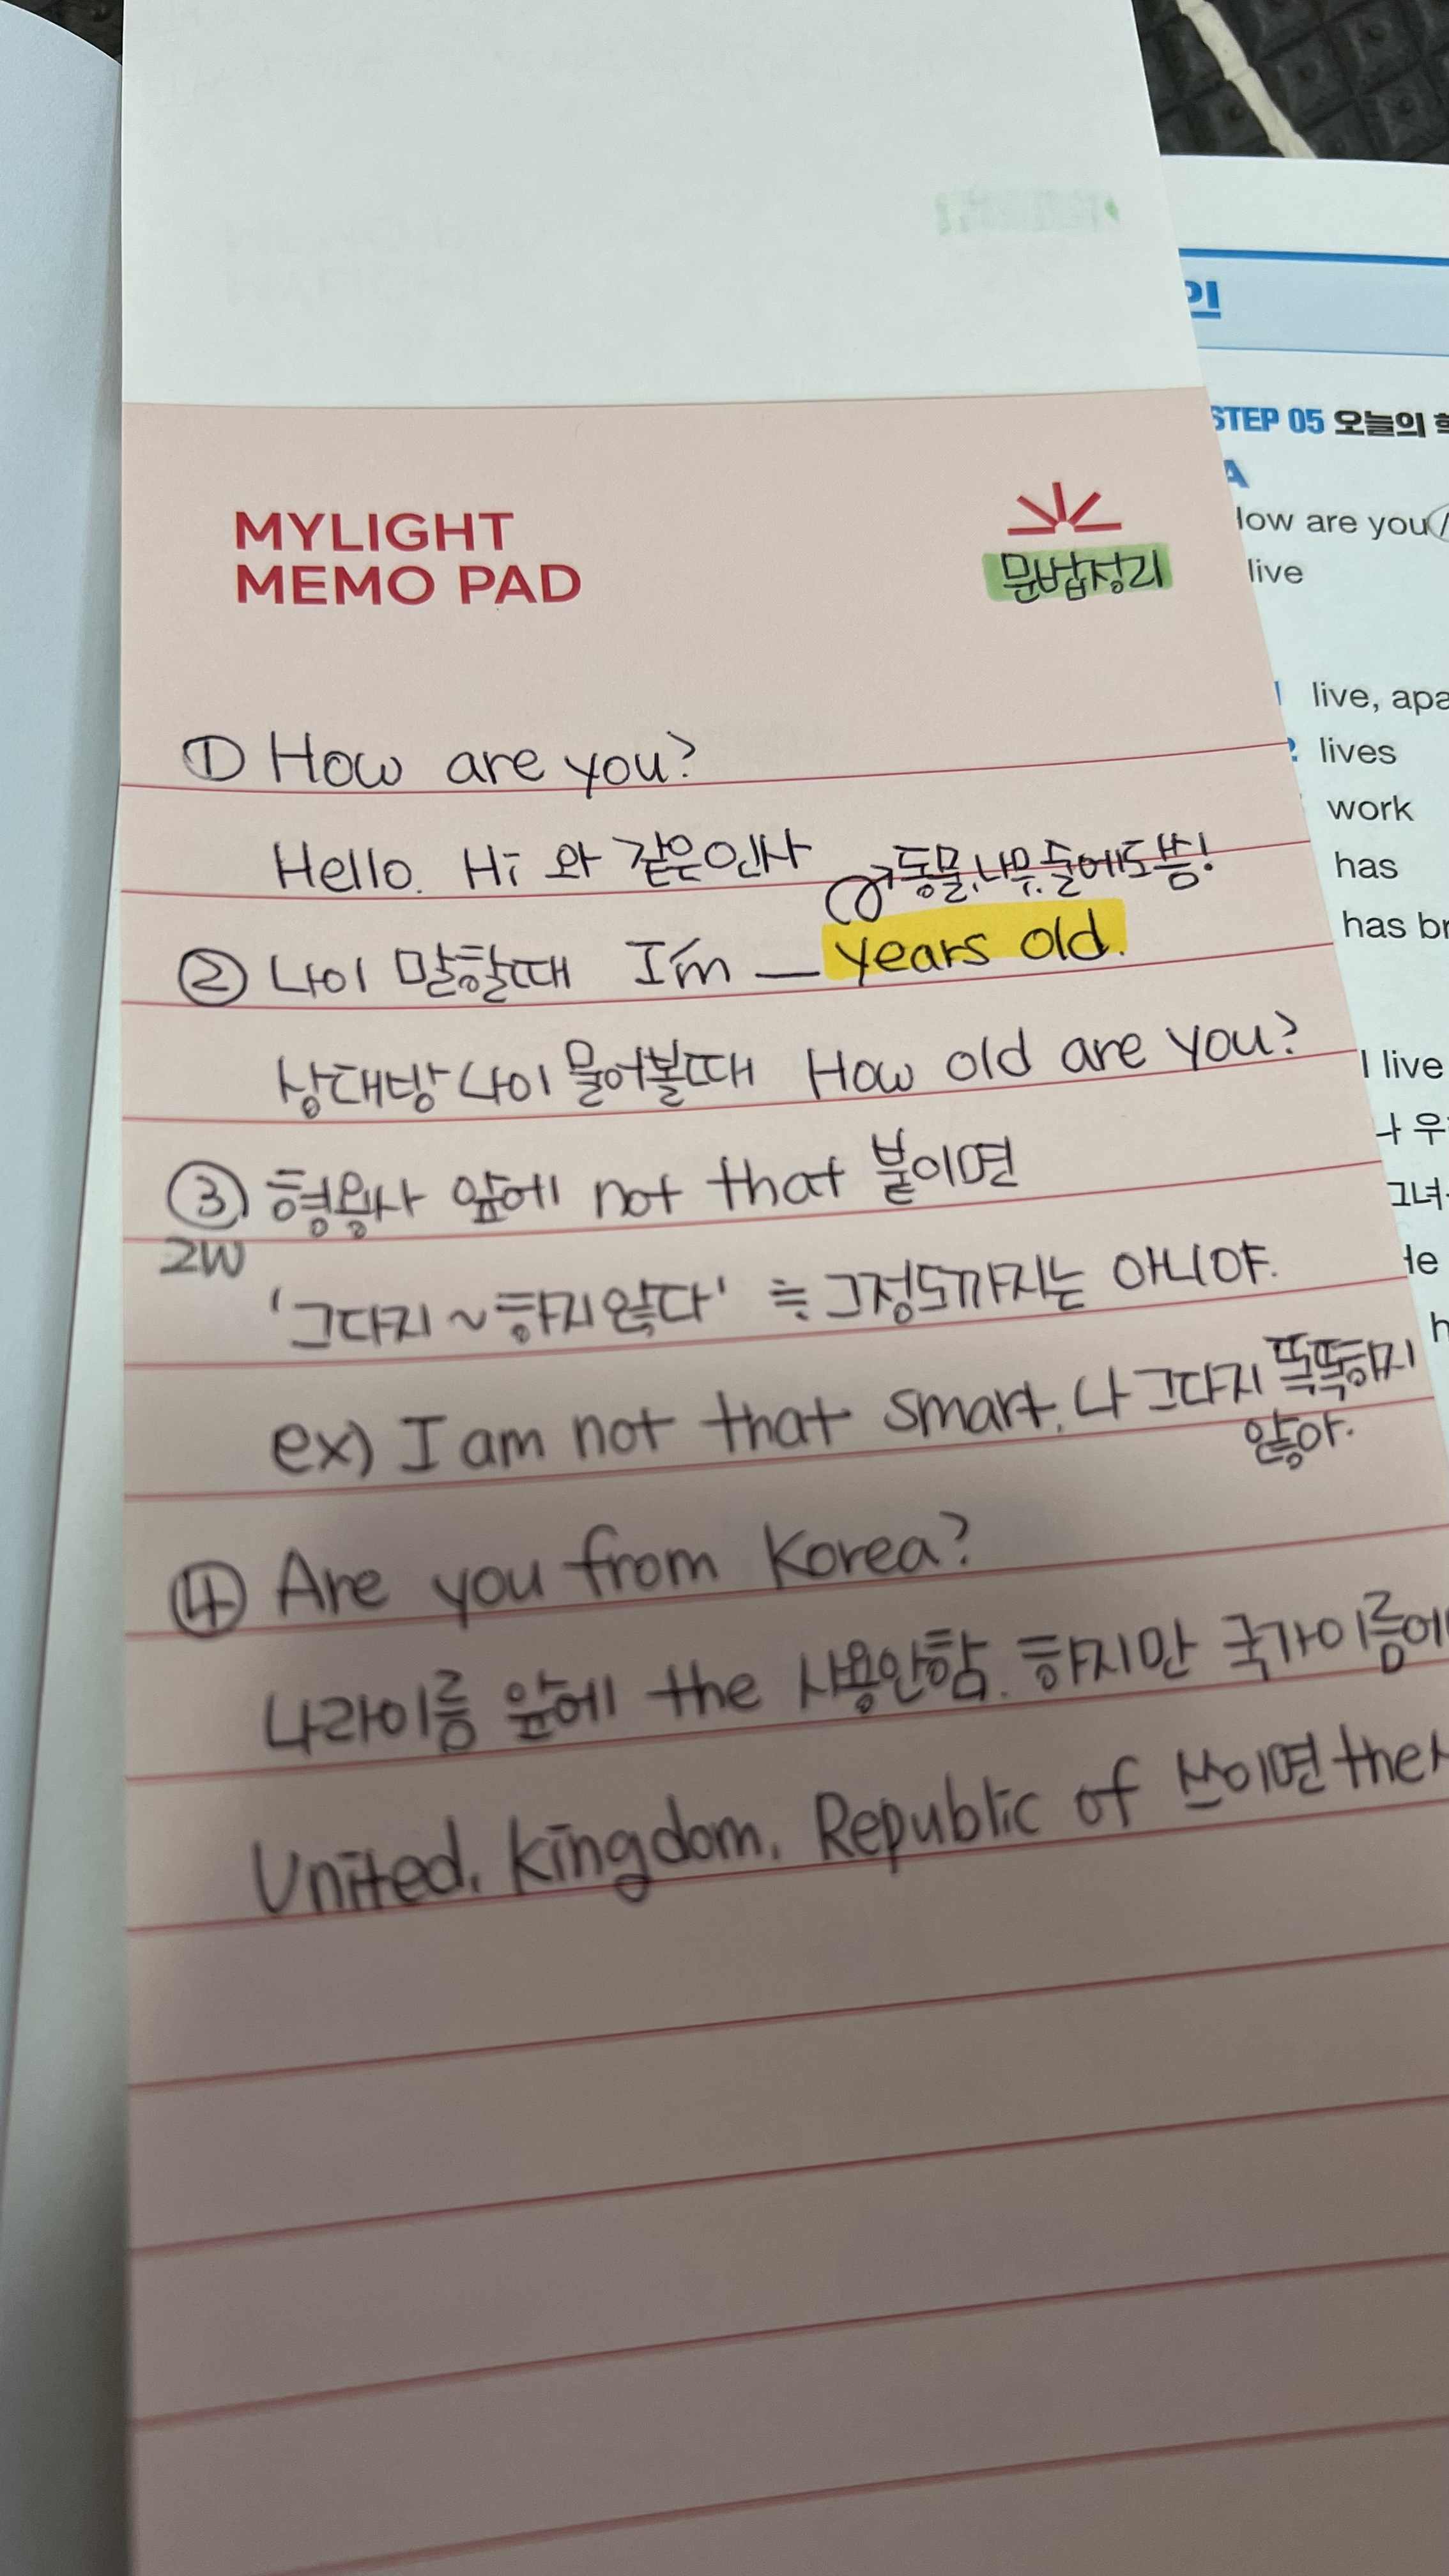 MYLIGHT
MEMO PAD
문법정리
① How are you?
Hello. Hi 와 같은인사
동물,나무,돌에도씀!
② 나이 말할때 I'm __ years old.
상대방 나이 물어볼때 How old are you?
③ 형용사 앞에 not that 붙이면
2W
'그다지 ~ 하지않다' ≒ 그정도까지는 아니야.
ex) I am not that smart. 나 그다지 똑똑하지
않아.
④ Are you from Korea?
나라이름 앞에 the 사용안함. 하지만 국가이름에
United, kingdom, Republic of 쓰이면 the
STEP 05 오늘의
A
are you
live
live,
2 lives
work
has
has
I live
그녀